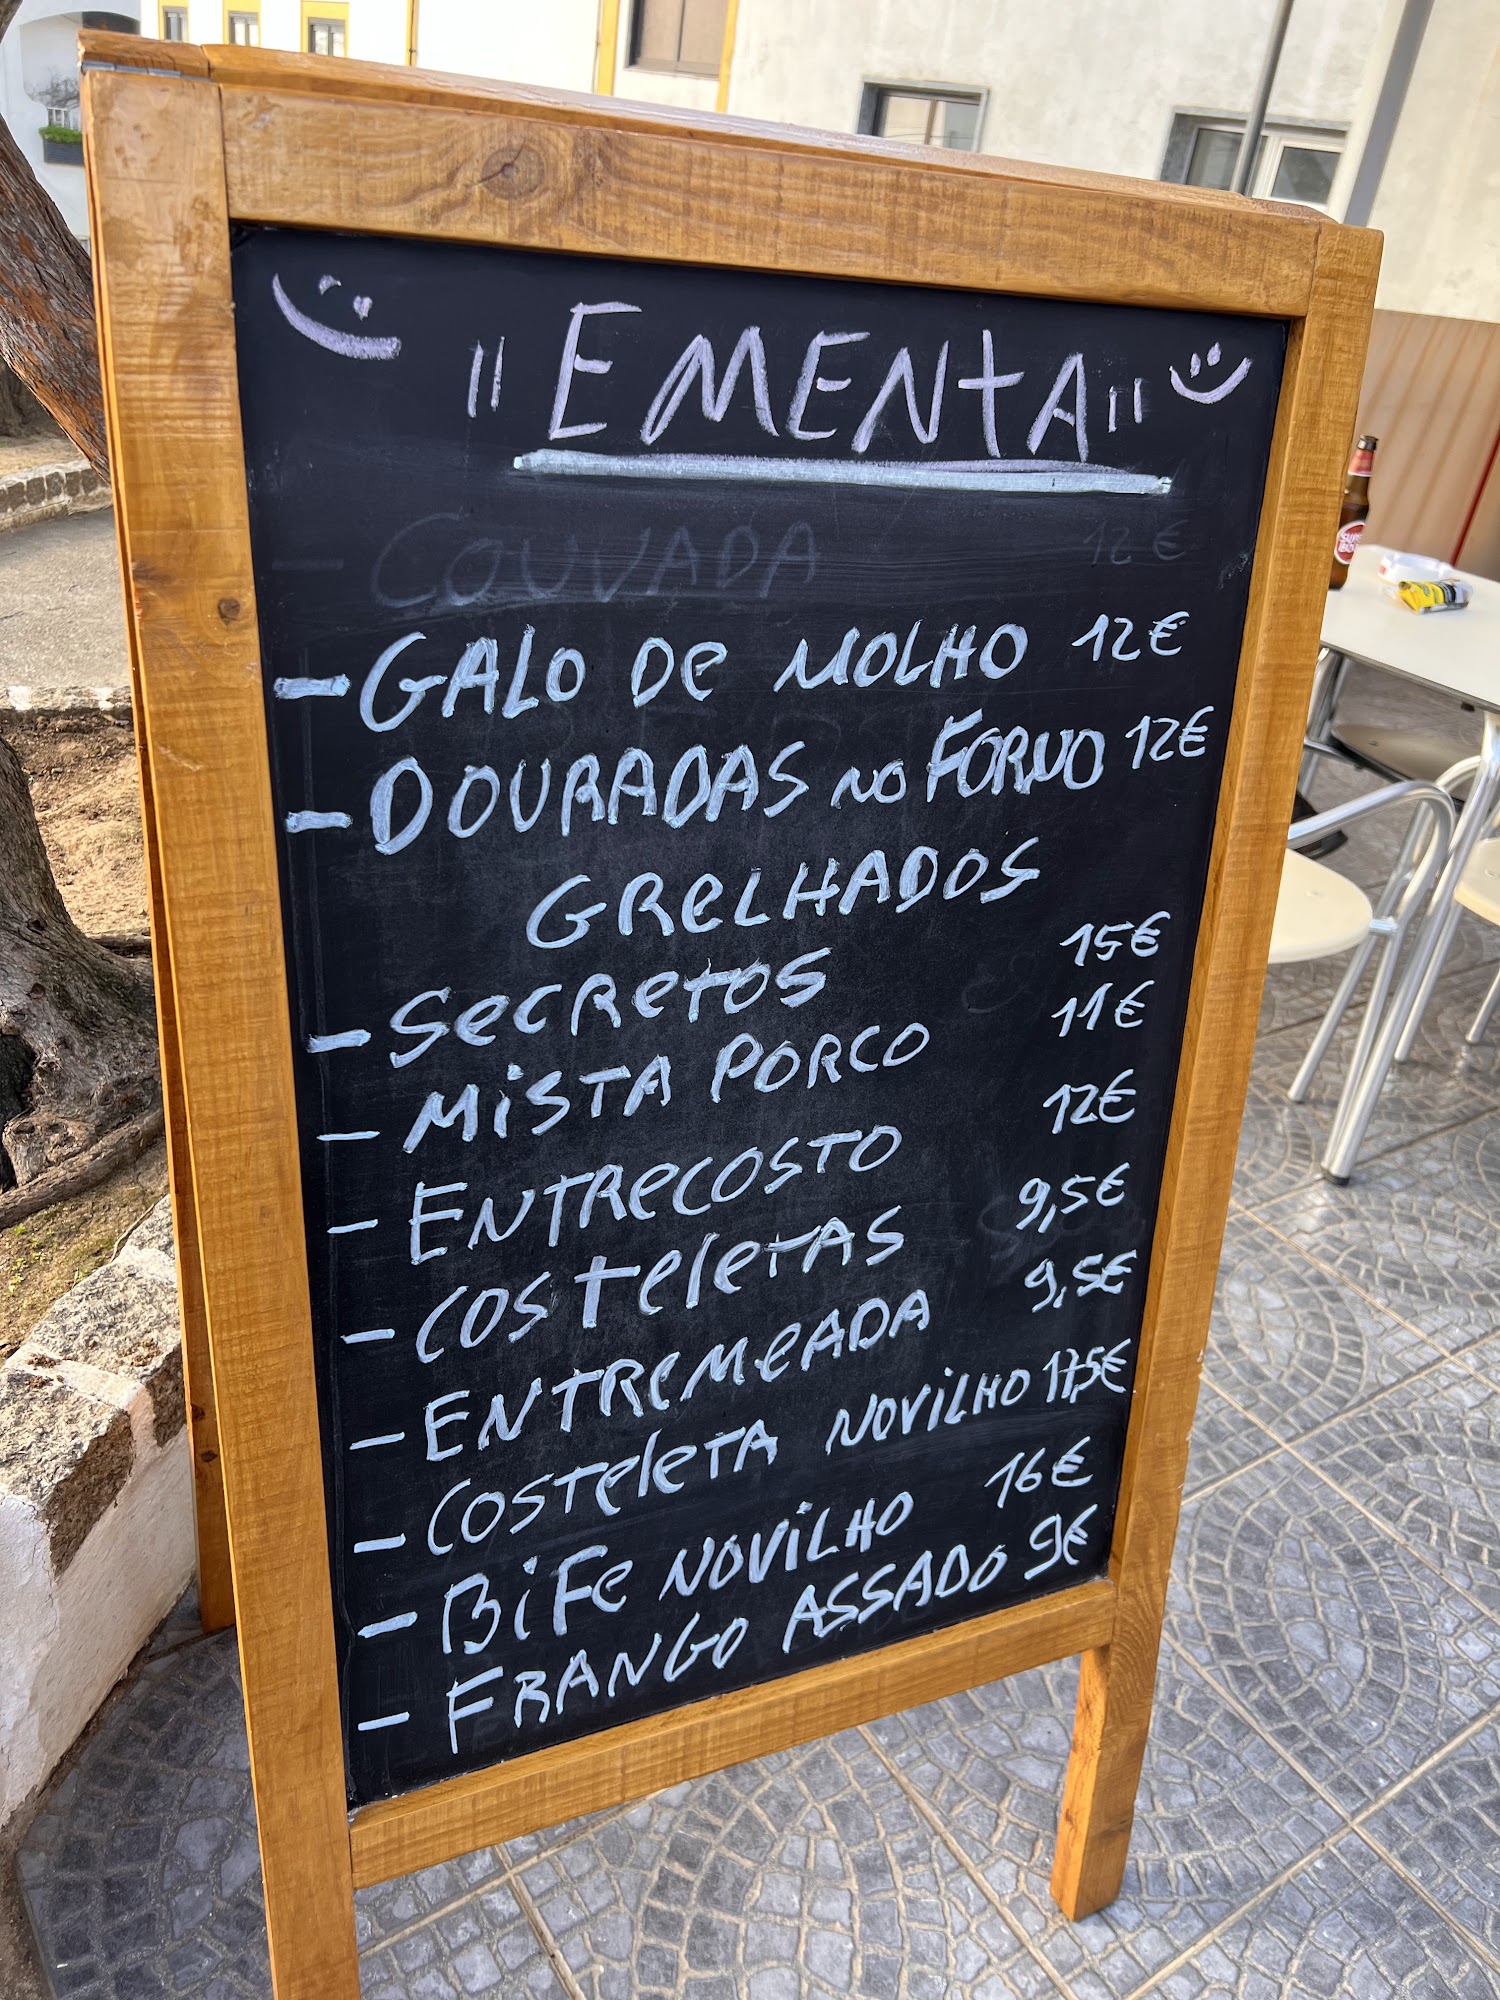 "EMENTA"
- COUVADA 12€
- GALO DE MOLHO 12€
- DOURADAS NO FORNO 12€
GRELHADOS
- SECRETOS 15€
- MISTA PORCO 11€
- ENTRECOSTO 12€
- COSTELETAS 9,5€
- ENTREMEADA 9,5€
- COSTELETA NOVILHO 17,5€
- BIFE NOVILHO 16€
- FRANGO ASSADO 9€
SUPER
BOCK